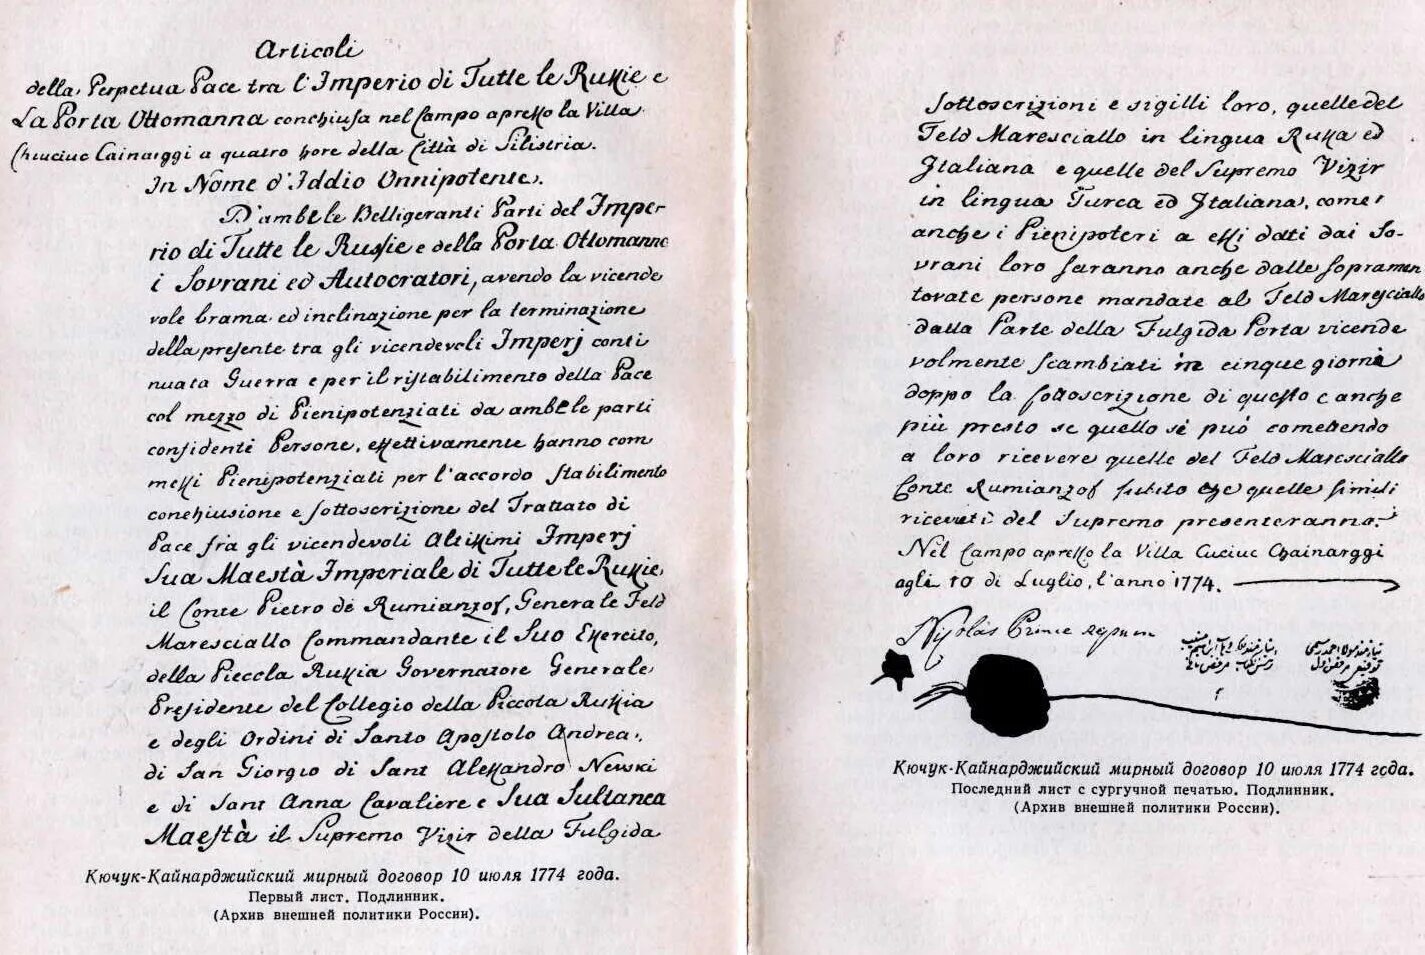 Articoli
della Perpetua Pace tra l'Imperio di Tutte le Russie e
La Porta Ottomanna conchiusa nel Campo apresso la Villa
Chiuciuc Cainarggi a quatro hore della Città di Silistria.
In Nome d'Iddio Onnipotente.
D'ambele Belligeranti Parti del Imper-
rio di Tutte le Russie e della Porta Ottomanna
i Sovrani ed Autocratori, avendo la vicende
vole brama ed inclinazione per la terminazione
della presente tra gli vicendevoli Imperj conti
nuata Guerra e per il ristabilimento della Pace
col mezzo di Pienipotenziati da ambele parti
confidenti Persone, effettivamente hanno com
messi Pienipotenziati per l'accordo stabilimento
conchiusione e sottoscrizione del Trattato di
Pace fra gli vicendevoli Altissimi Imperj
Sua Maestà Imperiale di Tutte le Russie
il Conte Pietro de Rumianzof, Generale Feld
Maresciallo Commandante il Suo Essercito,
della Piccola Russia Governatore Generale
Presidente del Collegio della Piccola Russia
e degli Ordini di Santo Apostolo Andrea,
di San Giorgio di Sant Alessandro Newski
e di Sant Anna Cavaliere e Sua Sultanea
Maestà il Supremo Vizir della Fulgida
Кючук-Кайнарджийский мирный договор 10 июля 1774 года.
Первый лист. Подлинник.
(Архив внешней политики России).
sottoscrizioni e sigilli loro, quelle del
Feld Maresciallo in lingua Russa ed
Italiana e quelle del Supremo Vizir
in lingua Turca ed Italiana, come
anche i Pienipoteri a essi dati dai So-
vrani loro saranno anche dalle sopramen
tovate persone mandate al Feld Maresciallo
dalla Parte della Fulgida Porta vicende
volmente scambiati in cinque giorni
doppo la sottoscrizione di questo e anche
più presto se quello sè può comettendo
a loro ricevere quelle del Feld Maresciallo
Conte Rumianzof subito che quelle simili
ricevuti del Supremo presenteranno.
Nel Campo apresso la Villa Cuciuc Chainarggi
agli 10 di Luglio, l'anno 1774.
Prince
Кючук-Кайнарджийский мирный договор 10 июля 1774 года.
Последний лист с сургучной печатью. Подлинник.
(Архив внешней политики России).